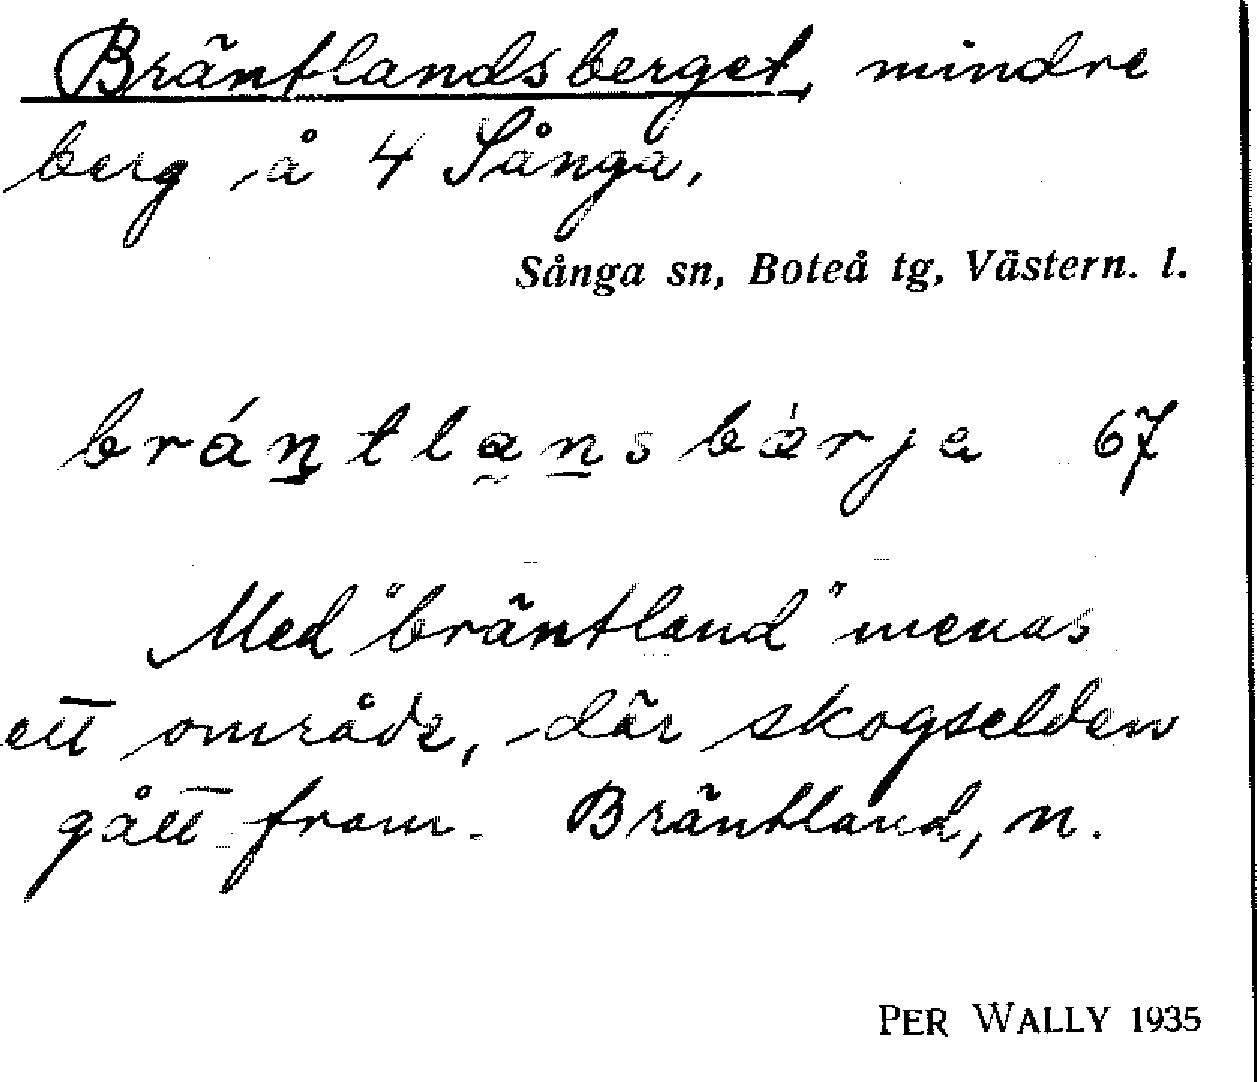 Bräntlandsberget, mindre
berg å 4 Sånga,
Sånga sn, Boteå tg, Västern. l.
brántlansbærja 67
Med "bräntland" menas
ett område, där skogselden
gått fram. Bräntland, n.
PER WALLY 1935